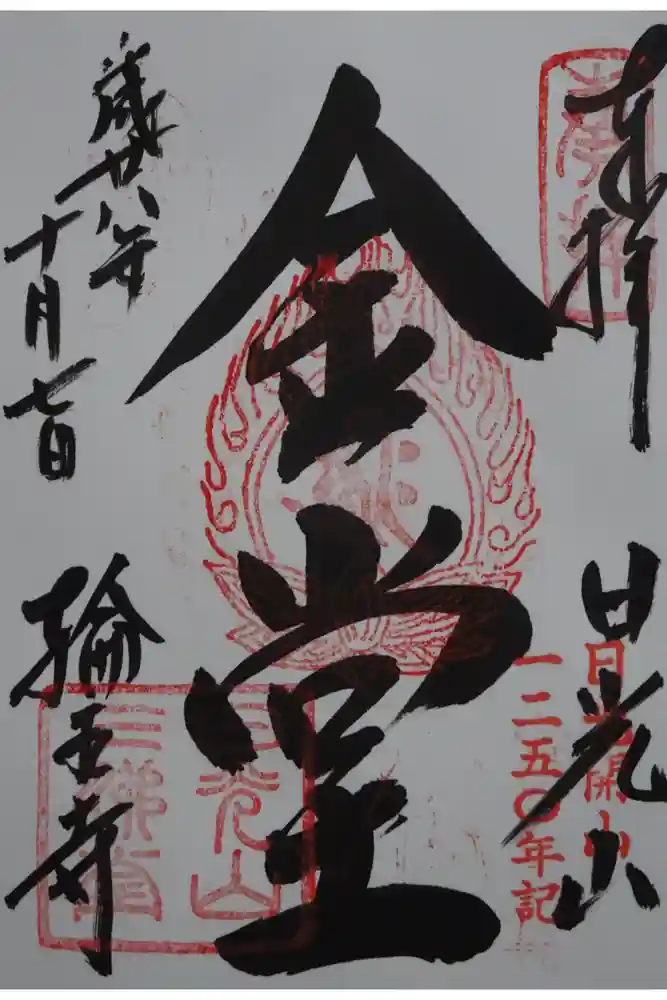 奉拝
日光山
日光開山
一二五〇年記
金堂
歳廿八年
十月七日
輪王寺
奉拝
日光山
三佛堂